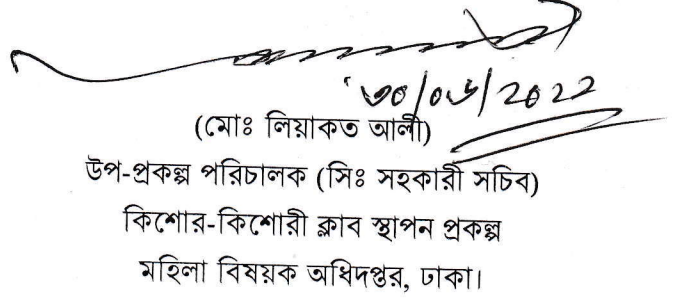 ৩০/০৬/2022
(মোঃ লিয়াকত আলী)
উপ-প্রকল্প পরিচালক (সিঃ সহকারী সচিব)
কিশোর-কিশোরী ক্লাব স্থাপন প্রকল্প
মহিলা বিষয়ক অধিদপ্তর, ঢাকা।